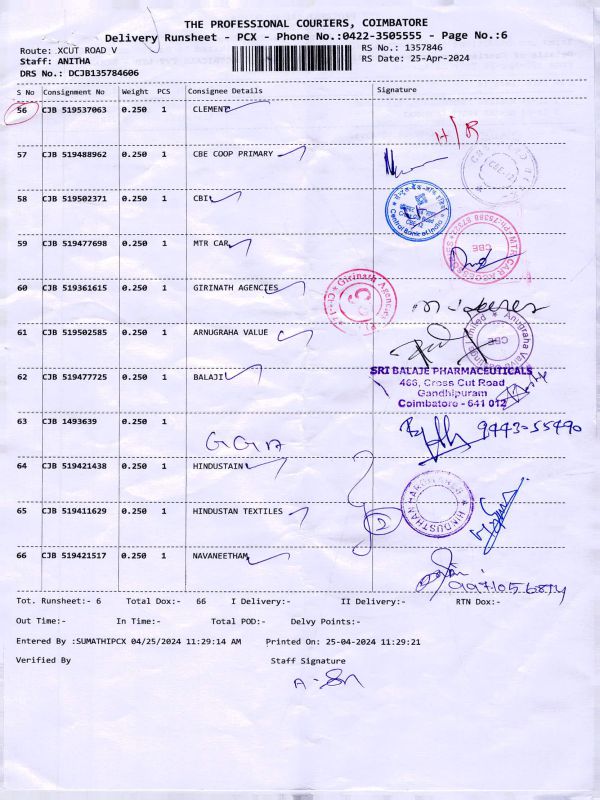 THE PROFESSIONAL COURIERS, COIMBATORE
Delivery Runsheet - PCX - Phone No.:0422-3505555 - Page No.:6
Route: XCUT ROAD V RS No.: 1357846
Staff: ANITHA RS Date: 25-Apr-2024
DRS No.: DCJB135784606
S No Consignment No Weight PCS Consignee Details Signature
56 CJB 519537063 0.250 1 CLEMENT
H/R
57 CJB 519488962 0.250 1 CBE COOP PRIMARY
58 CJB 519502371 0.250 1 CBI
Central Bank of India
59 CJB 519477698 0.250 1 MTR CAR
CBE
60 CJB 519361615 0.250 1 GIRINATH AGENCIES
Girinath Agencies
61 CJB 519502585 0.250 1 ARNUGRAHA VALUE
CBE
62 CJB 519477725 0.250 1 BALAJI
SRI BALAJE PHARMACEUTICALS
466, Cross Cut Road
Gandhipuram
Coimbatore - 641 012
63 CJB 1493639 0.250 1
GGA
9443-55490
64 CJB 519421438 0.250 1 HINDUSTAIN
65 CJB 519411629 0.250 1 HINDUSTAN TEXTILES
2
66 CJB 519421517 0.250 1 NAVANEETHAM
Tot. Runsheet:- 6 Total Dox:- 66 I Delivery:- II Delivery:- RTN Dox:-
Out Time:- In Time:- Total POD:- Delvy Points:-
Entered By :SUMATHIPCX 04/25/2024 11:29:14 AM Printed On: 25-04-2024 11:29:21
Verified By Staff Signature